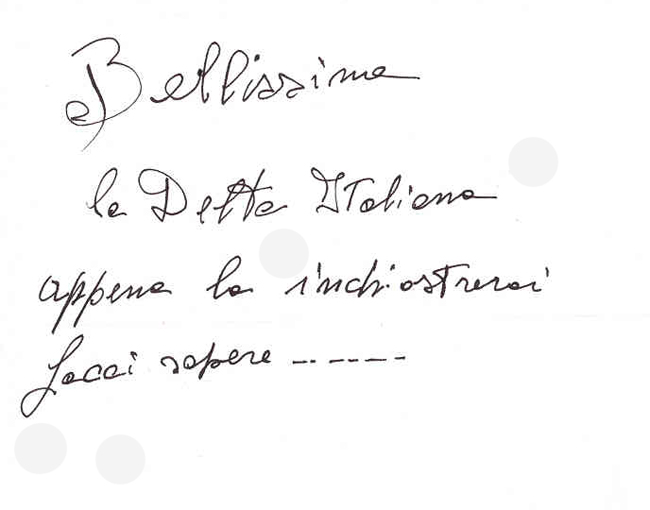 Bellissima
la Delta Italiana
appena la inchiostrerai
facci sapere ------